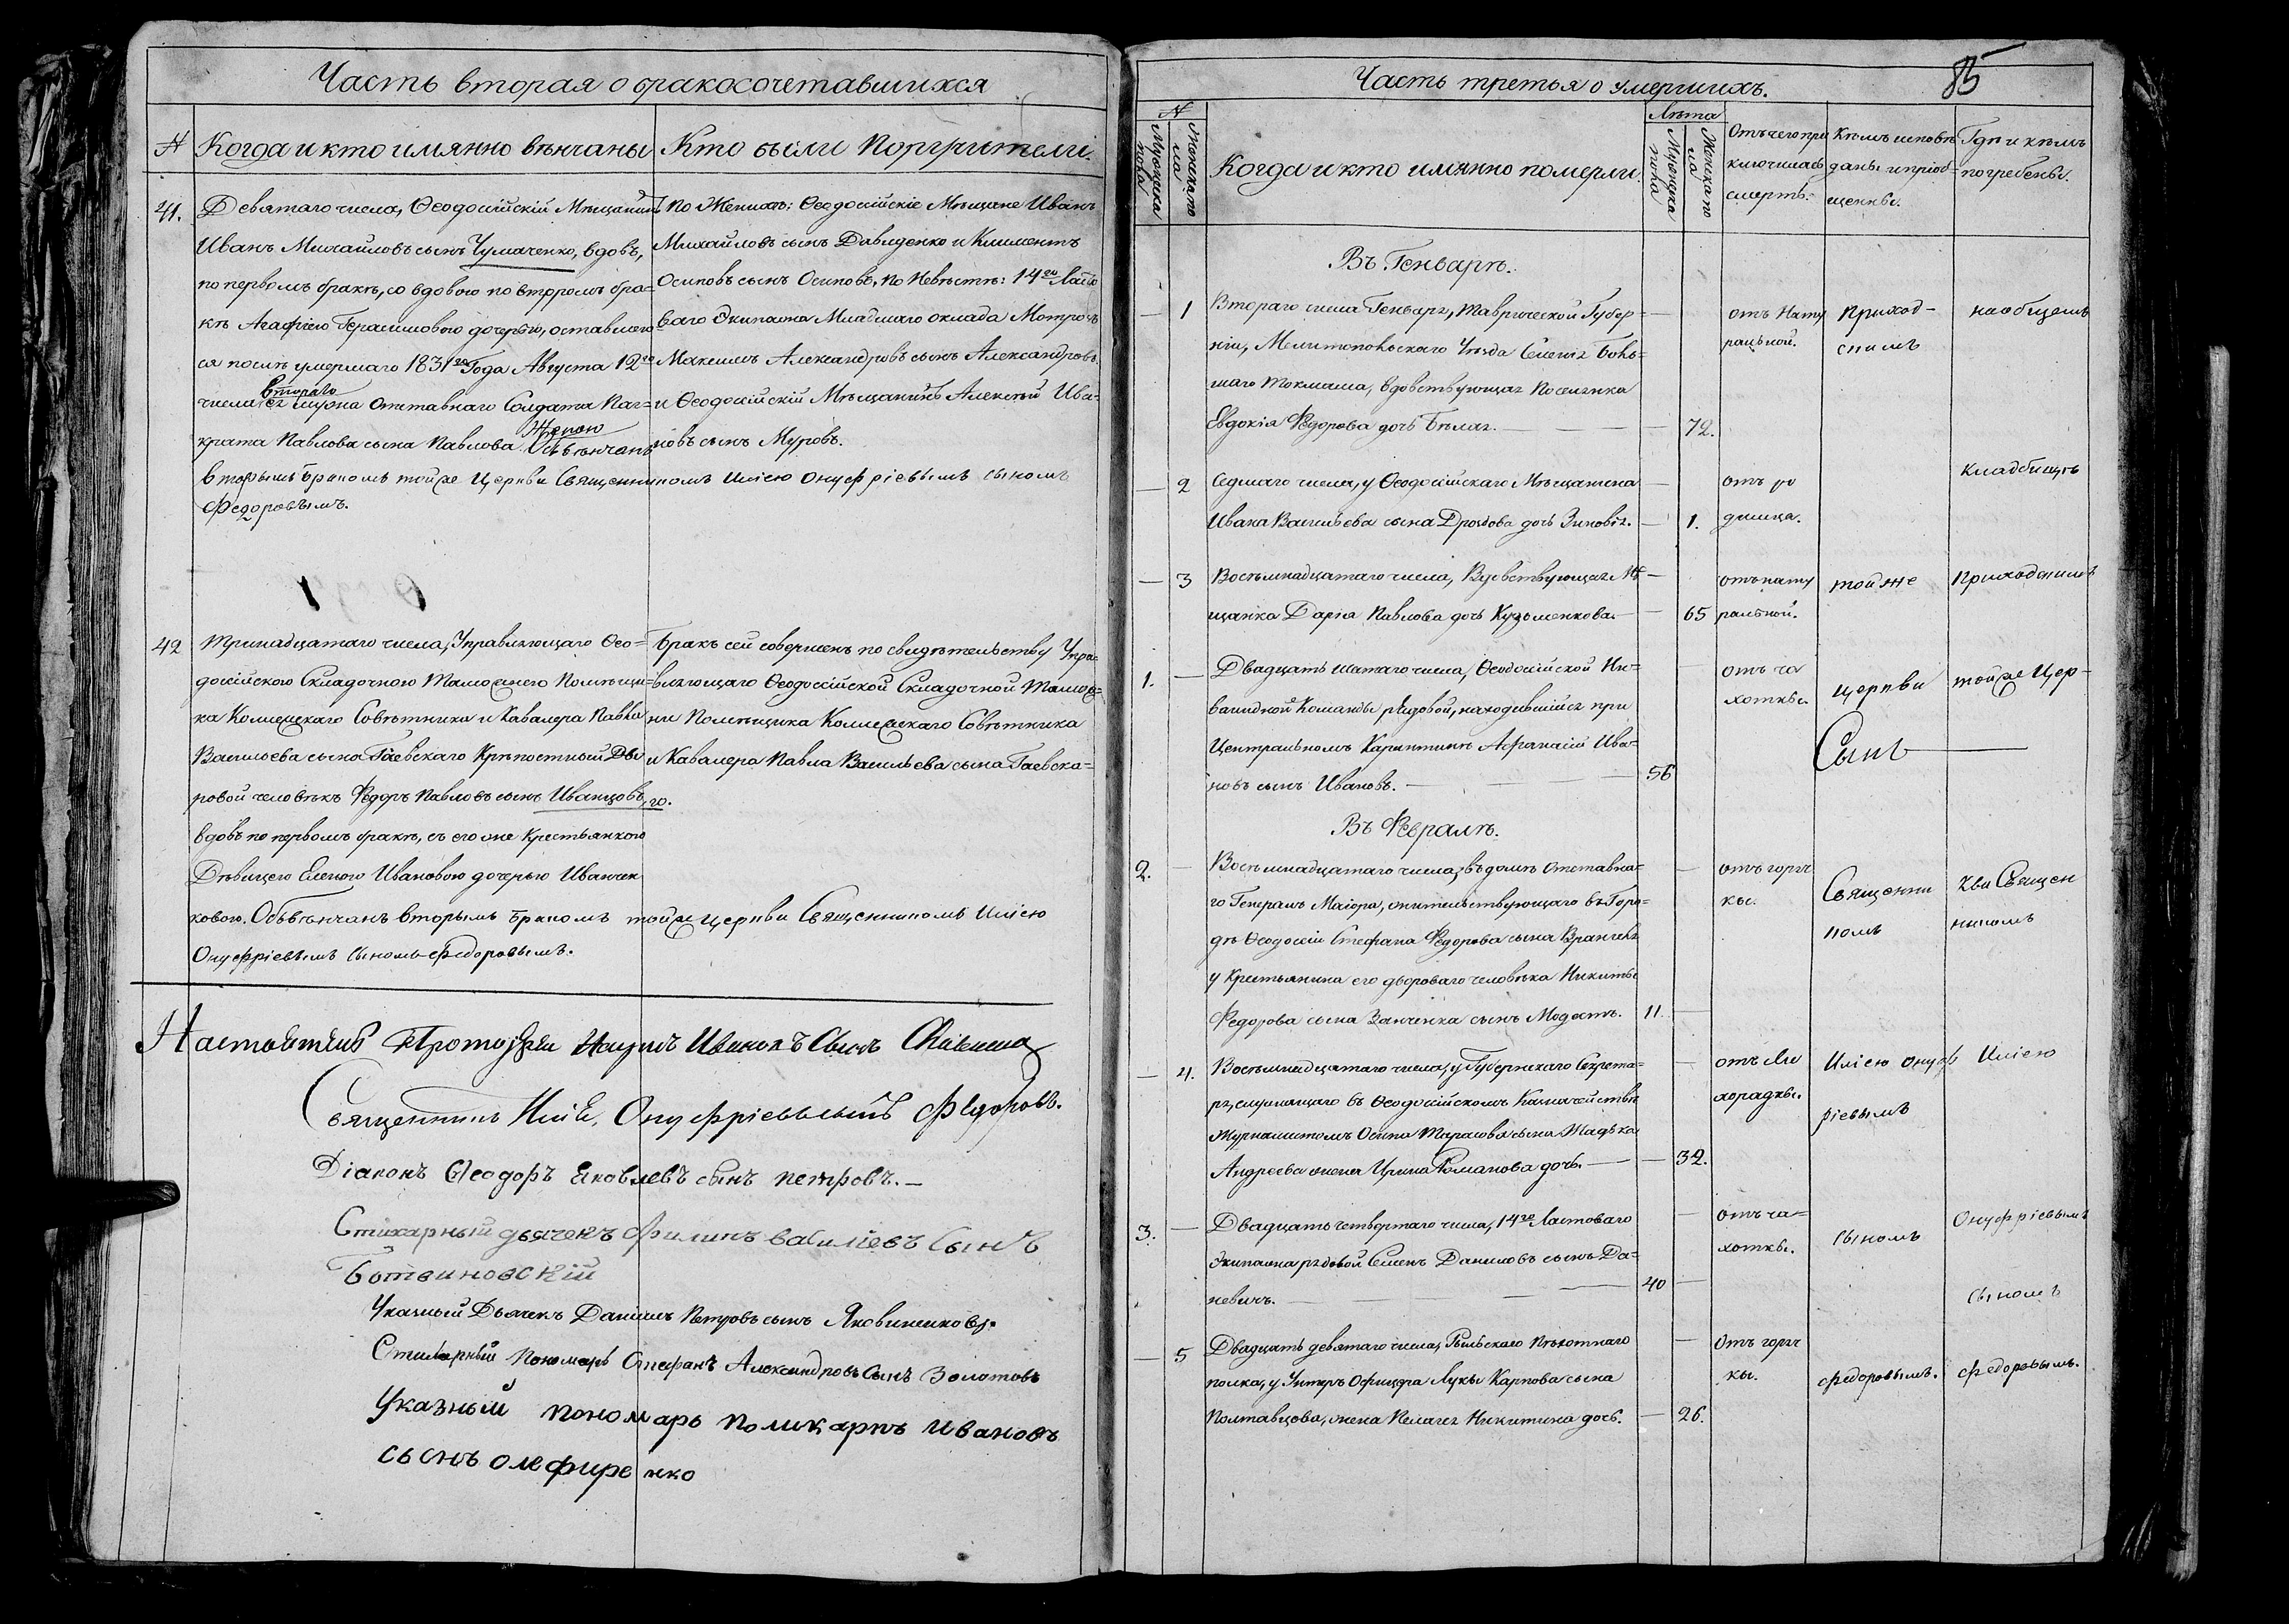 Часть вторая о бракосочетавшихся
№
Когда и кто имянно вѣнчаны
Кто были Поргрители.
41.
Девятаго числа, Ѳеодосійскій Мѣщанинъ
Иванъ Михайловъ сынъ Чумаченко, вдовъ,
по первомъ бракѣ, со вдовою по второмъ бра-
кѣ Агафіею Герасимовою дочерью, оставшею
ся послѣ умершаго 1831го Года Августа 12го
втораго
числа ея мужа Отставнаго Солдата Пан-
Женою
крата Павлова сына Павлова. Обвѣнчанъ
вторымъ бракомъ тойже Церкви Священникомъ Иліею Онуфріевымъ сыномъ
Федоровымъ.
По Женихѣ: Ѳеодосійскіе Мѣщане Иванъ
Михайловъ сынъ Давиденко и Климентъ
Осиповъ сынъ Осиповъ, по Невѣстѣ: 14го Ласто
ваго Экипажа Младшаго оклада Матросъ
Максимъ Александровъ сынъ Александровъ
и Ѳеодосійскій Мѣщанинъ Алексѣй Ива-
новъ сынъ Муровъ.
42
Тринадцатаго числа, Управляющаго Ѳео-
досійскою Складочною Таможнею Помѣщи-
ка Коллежскаго Совѣтника и Кавалера Павла
Васильева сына Гаевскаго Крѣпостный Дво
ровой человѣкъ Федоръ Павловъ сынъ Иванцовъ,
вдовъ по первомъ бракѣ, съ его же Крестьянкою
Дѣвицею Еленою Ивановою дочерью Иванчен
ковою. Обвѣнчанъ вторымъ бракомъ тойже Церкви Священникомъ Иліею
Онуфріевымъ Сыномъ Федоровымъ.
Бракъ сей совершенъ по свидѣтельству Упра-
вляющаго Ѳеодосійской Складочной Таможе-
ни Помѣщика Коллежскаго Совѣтника
и Кавалера Павла Васильева сына Гаевска-
го.
Протоіерей Наумъ Ивановъ Сынъ
Священникъ Илія, Онуфріевъ сынъ Федоровъ.
Діаконъ Ѳеодоръ Яковлевъ сынъ Петровъ.
Стихарный дьячекъ Филипъ василіевъ Сынъ
Ботвиновскій
Указный Дьячекъ Даніилъ Петровъ сынъ
Стихарный Пономарь Стефанъ Александровъ Сынъ Золотовъ
Указный пономарь поликарпъ ивановъ
сынъ олефиренко
Часть третья о умершихъ.
85
№
Мужеска пола
Женскаго
Когда и кто имянно померли
Лѣта
Мужеска пола
Женскаго
Отъ чего при
ключилась
смерть.
Кѣмъ исповѣ
даны и пріоб-
щенны.
Гдѣ и кѣмъ
погребены.
Въ Генварѣ.
1
Втораго числа Генваря, Таврической Губер-
ніи, Мелитопольскаго Уѣзда Селенія Боль-
шаго Токмака, вдовствующая Поселянка
Евдокія Федорова дочь Бѣлая.
72.
отъ Нату
ральной.
Приход-
скимъ
на общемъ
2
Седмаго числа, у Ѳеодосійскаго Мѣщанина
Ивана Васильева сына Дроздова дочь Зиновія.
1.
отъ ро
димца.
кладбищѣ
3
Восемнадцатаго числа, Вдовствующая Мѣ
щанка Дарія Павлова дочь Кузоменкова.
65
отъ нату
ральной.
тойже
Приходскимъ
1.
Двадцать шестаго числа, Ѳеодосійской Ин-
валидной Команды рядовой, находившійся при
Центральномъ Карантинѣ Афанасій Ива-
новъ сынъ Ивановъ.
56
отъ ча
хотки.
Церкви
тойже Цер-
Сынъ
Въ Февралѣ.
2.
Восемнадцатаго числа, въ домѣ отставна-
го Генералъ Маіора, жительствующаго въ Горо-
дѣ Ѳеодосіи Стефана Федорова сына Врангеля
у Крестьянина его двороваго человѣка Никиты
Федорова сына Занченка сынъ Модестъ.
11
отъ горяч
ки.
Священни
комъ
кви Священ
никомъ
4.
Восемнадцатаго числа, у Губернскаго Секрета-
ря, служащаго въ Ѳеодосійскомъ Казначействѣ
Журналистомъ Осипа Тарасова сына
Андреева жена Ирина Романова дочь.
32.
отъ Ли
хорадки.
Иліею Онуф
ріевымъ
Иліею
3.
Двадцать четвертаго числа, 14го Ластоваго
Экипажа рядовой Семенъ Даниловъ сынъ Да-
невичъ.
40
отъ ча-
хотки.
сыномъ
Онуфріевымъ
сыномъ
5
Двадцать девятаго числа, Рыльскаго Пѣхотнаго
полка, у Унтеръ Офицера Луки Карпова сына
Полтавцова, жена Пелагея Никитина дочь.
26.
Отъ горяч
ки.
Федоровымъ.
Федоровымъ.